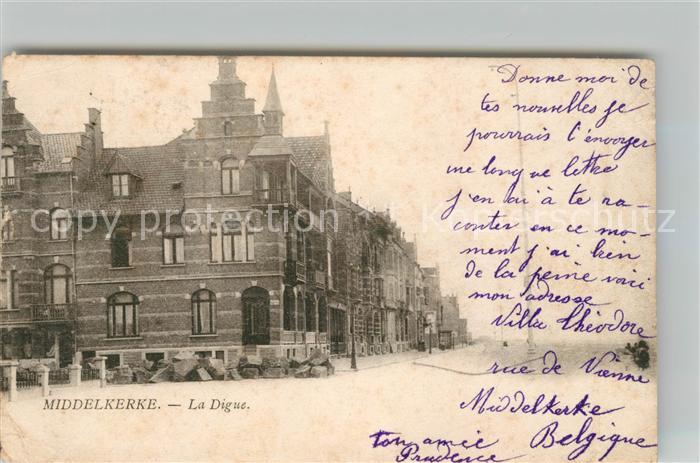 Donne moi de
tes nouvelles je
pourrais t'envoyer
une longue lettre
j'en ai à te ra-
conter en ce mo-
ment j'ai bien
de la peine voici
mon adresse
Villa Théodore
rue de Vienne
Middelkerke
Belgique
ton amie
Prudence
MIDDELKERKE. — La Digue.
copy protection Copyschutz